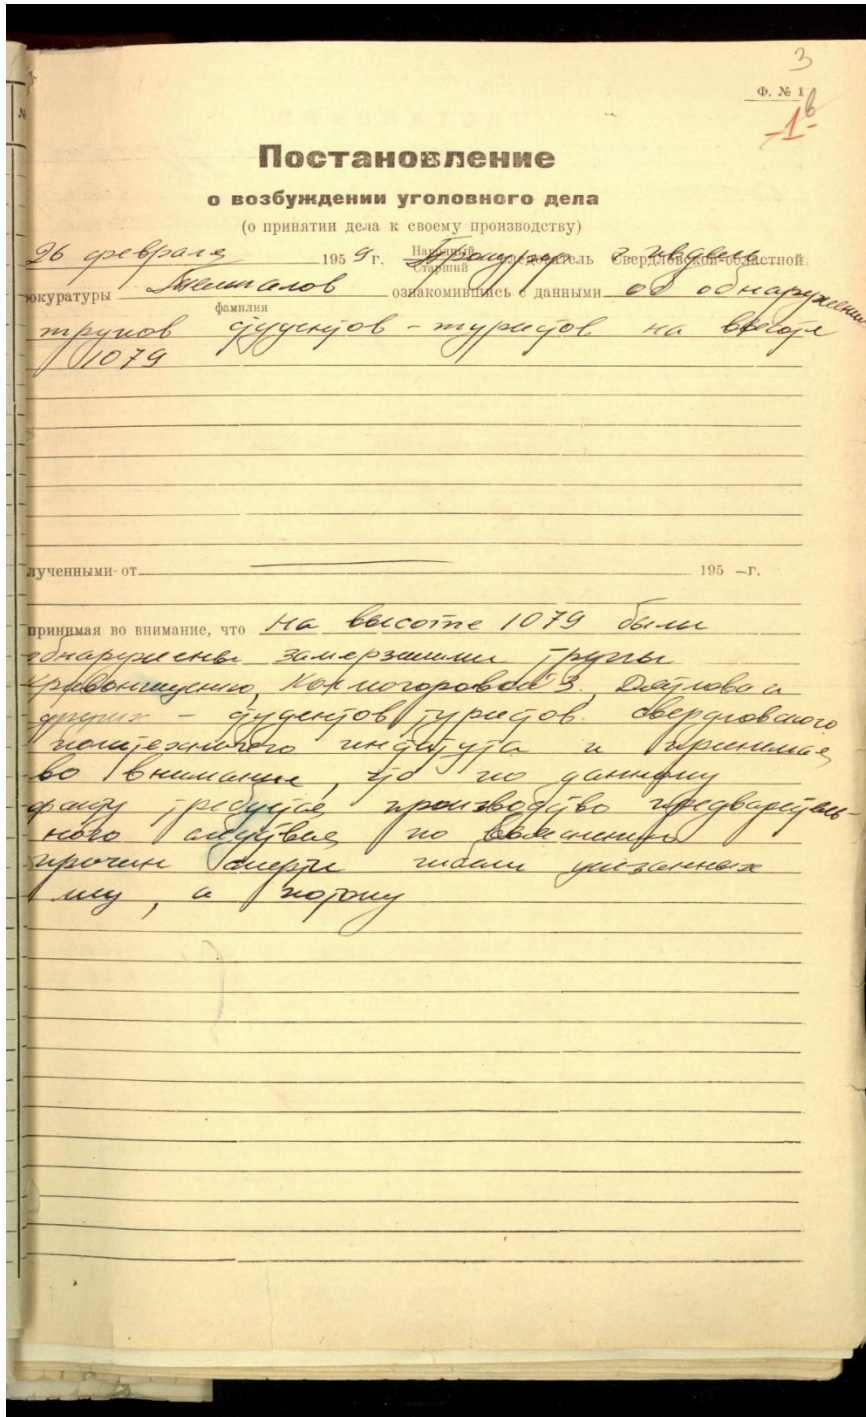 3
Ф. № 1
-1-
в
Постановление
о возбуждении уголовного дела
(о принятии дела к своему производству)
26 февраля 1959 г. Народный Старший Прокурор следователь г. Ивделя Свердловской областной
рокуратуры Темпалов ознакомившись с данными об обнаружении
фамилия
трупов студентов-туристов на высоте
1079
лученными от 195 - г.
принимая во внимание, что на высоте 1079 были
обнаружены замерзшими трупы
Кривонищенко, Колмогоровой З., Дятлова и
других - студентов туристов свердловского
политехничного института и принимая
во внимание, что по данному
факту требуется производство предваритель-
ного следствия по выяснению
причин смерти гибели указанных
лиц, а потому